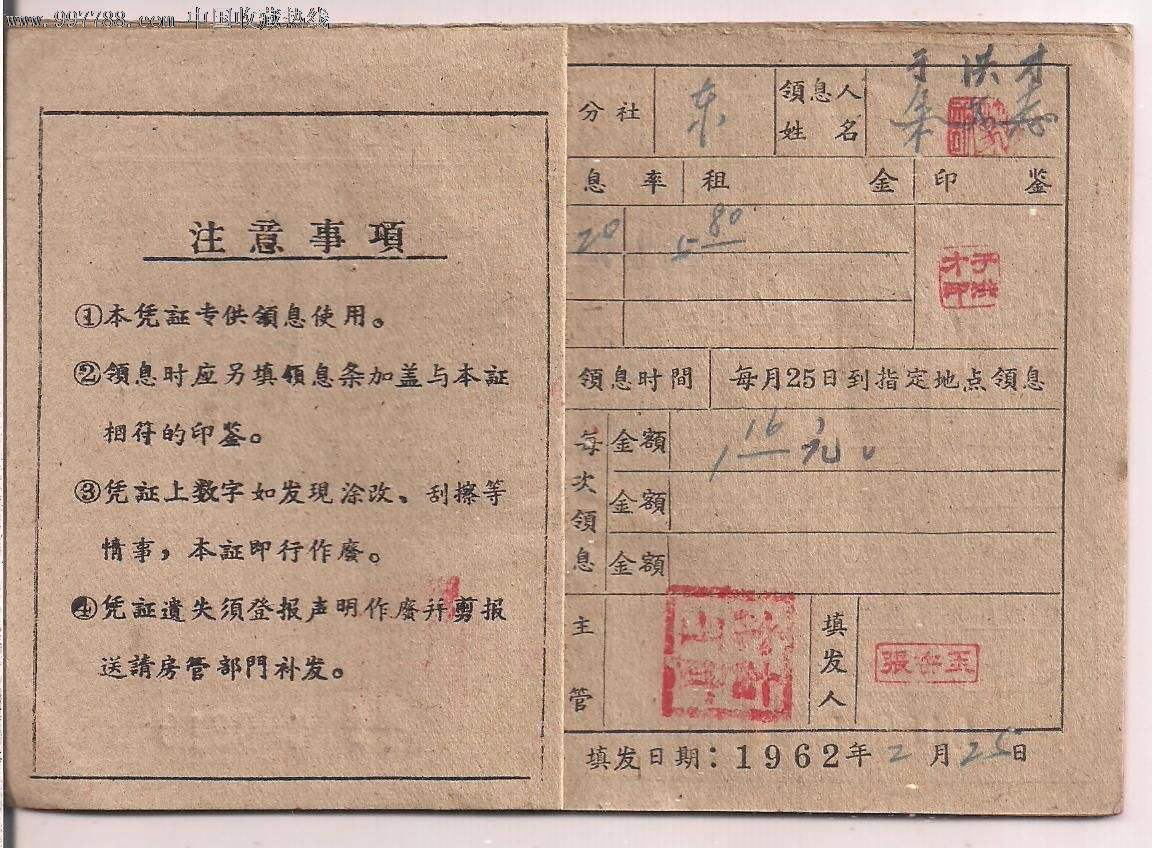 www.997788.com 中国收藏热线
注意事項
①本凭証专供領息使用。
②領息时应另填領息条加盖与本証
相符的印鉴。
③凭証上数字如发現涂改、刮擦等
情事，本証即行作废。
④凭証遺失須登报声明作廢并剪报
送請房管部門补发。
于洪才
分社 东 領息人姓名 朱
息率 租金 印鉴
20 5 80
于洪才印
領息时間 每月25日到指定地点領息
每次領息 金額 1 16 元
金額
金額
主管 填发人 張存玉
填发日期：1962年2月25日